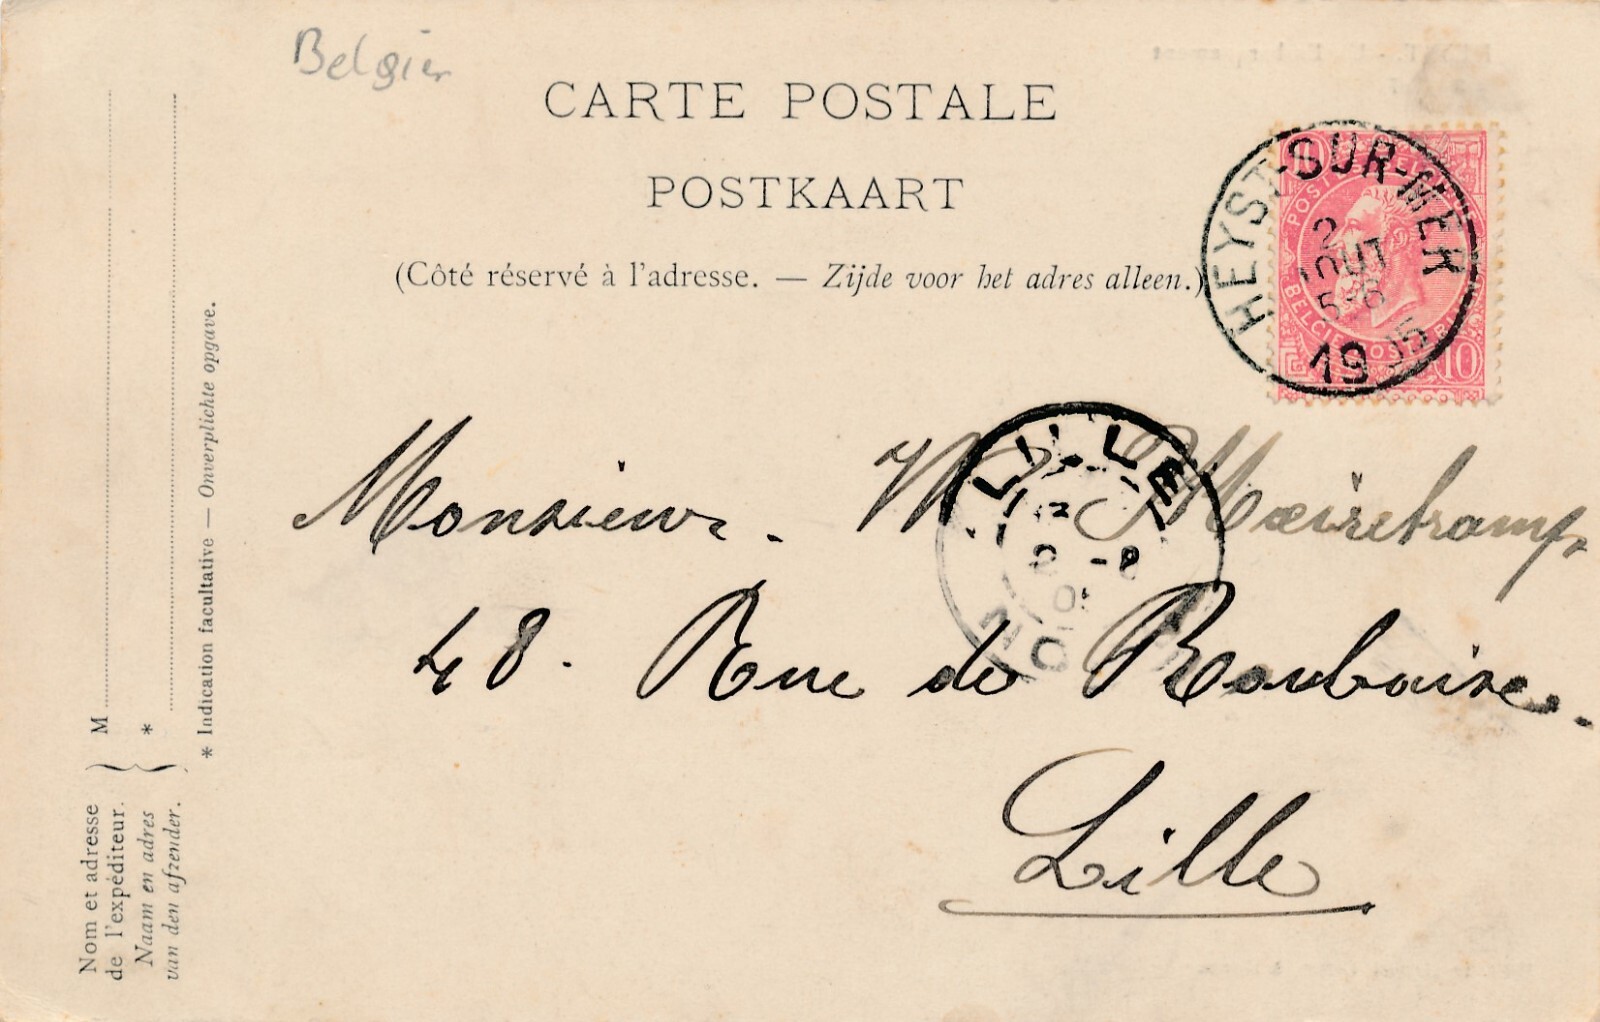 Belgien
CARTE POSTALE
POSTKAART
(Côté réservé à l'adresse. — Zijde voor het adres alleen.)
HEYST-SUR-MER
2
AOUT
5-6
1905
10
10
BELGIE POSTERIJ
LILLE
NORD
Monsieur. M
48. Rue de Roubaix.
Lille
* Indication facultative — Onverplichte opgave.
M
*
Nom et adresse
de l'expéditeur.
Naam en adres
van den afzender.